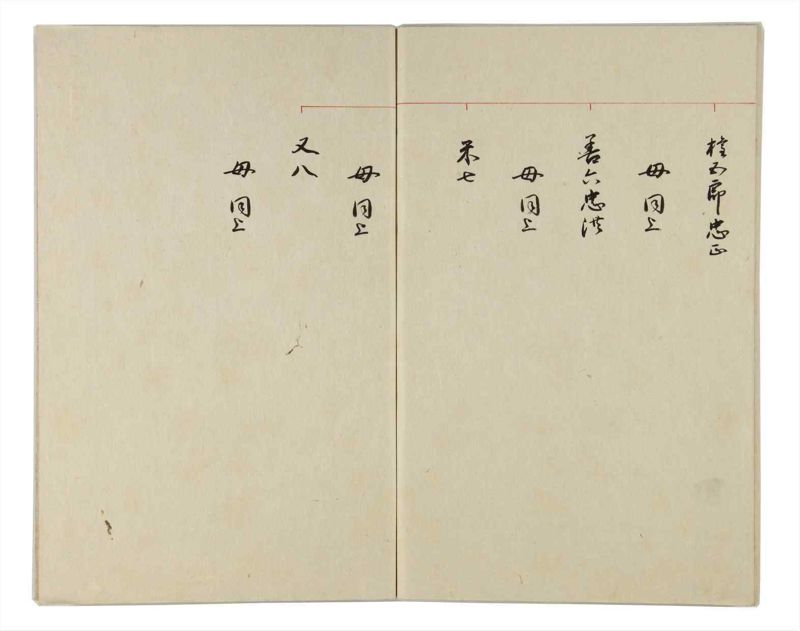 桂五郎忠正
母同上
善六忠洪
母同上
米七
母同上
又八
母同上